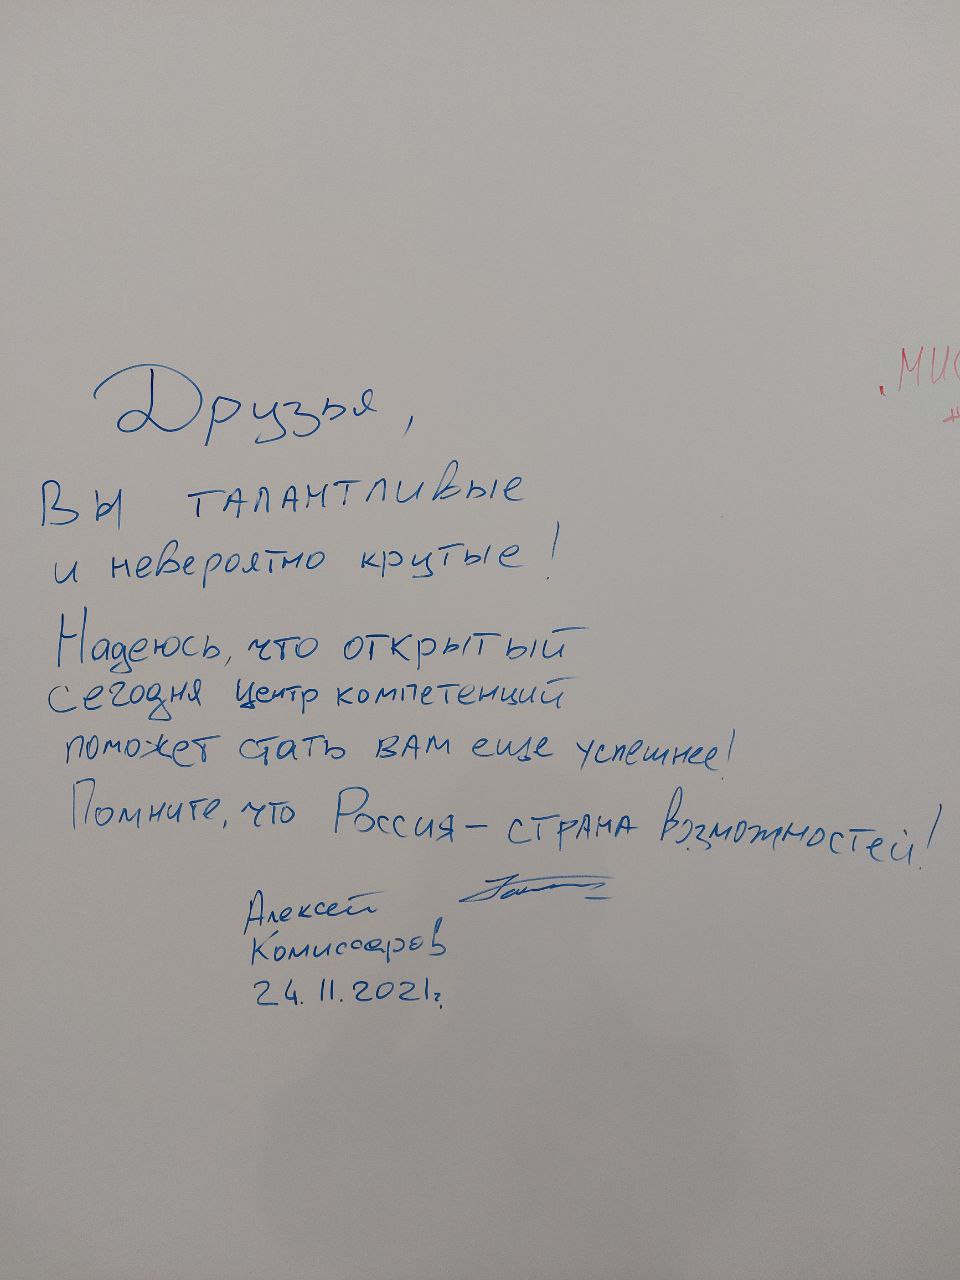 Друзья,
Вы талантливые
и невероятно крутые!
Надеюсь, что открытый
сегодня центр компетенций
поможет стать вам еще успешнее!
Помните, что Россия - страна возможностей!
Алексей
Комиссаров
24.11.2021г.